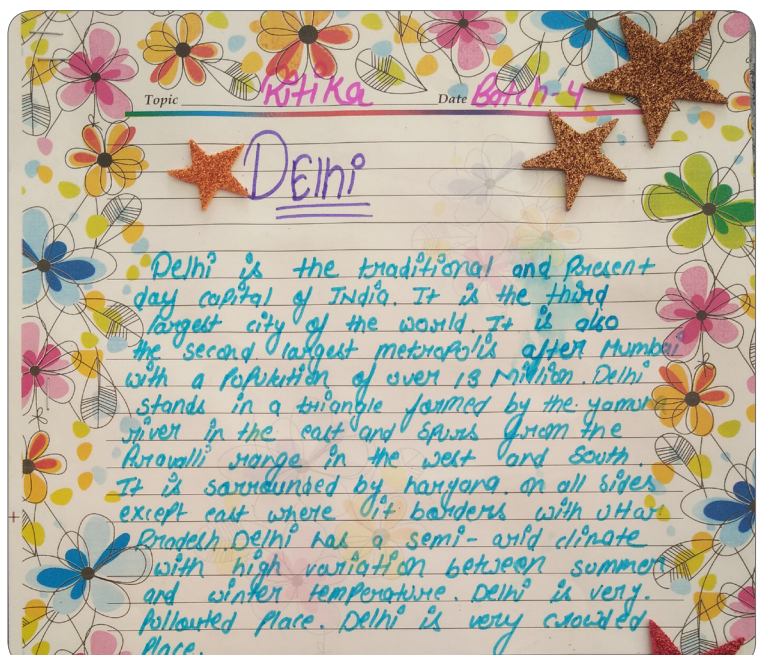 Topic Ritika Date Batch-4
Delhi
Delhi is the traditional and present
day capital of India. It is the third
largest city of the world. It is also
the second largest metropolis after Mumbai
with a Population of over 13 Million. Delhi
stands in a triangle formed by the yamuna
river in the east and spurs from the
Aravalli range in the west and South.
It is sarrounded by haryana. on all sides
except east where it borders with uttar
Pradesh. Delhi has a semi-arid climate
with high variation between summer
and winter temperature. Delhi is very.
Polloured Place. Delhi is very crowded
Place.